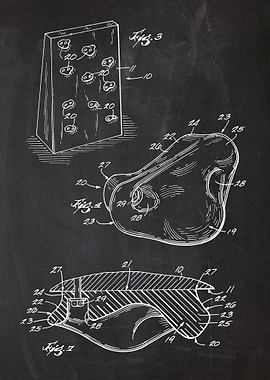 Fig. 3
20
20
11
10
20
20
23
22
25
20
27
28
20
29
28
Fig. 2
23
19
27
21
10
27
24
29
11
22
22
26
26
23
23
25
28
25
19
20
Fig. 1